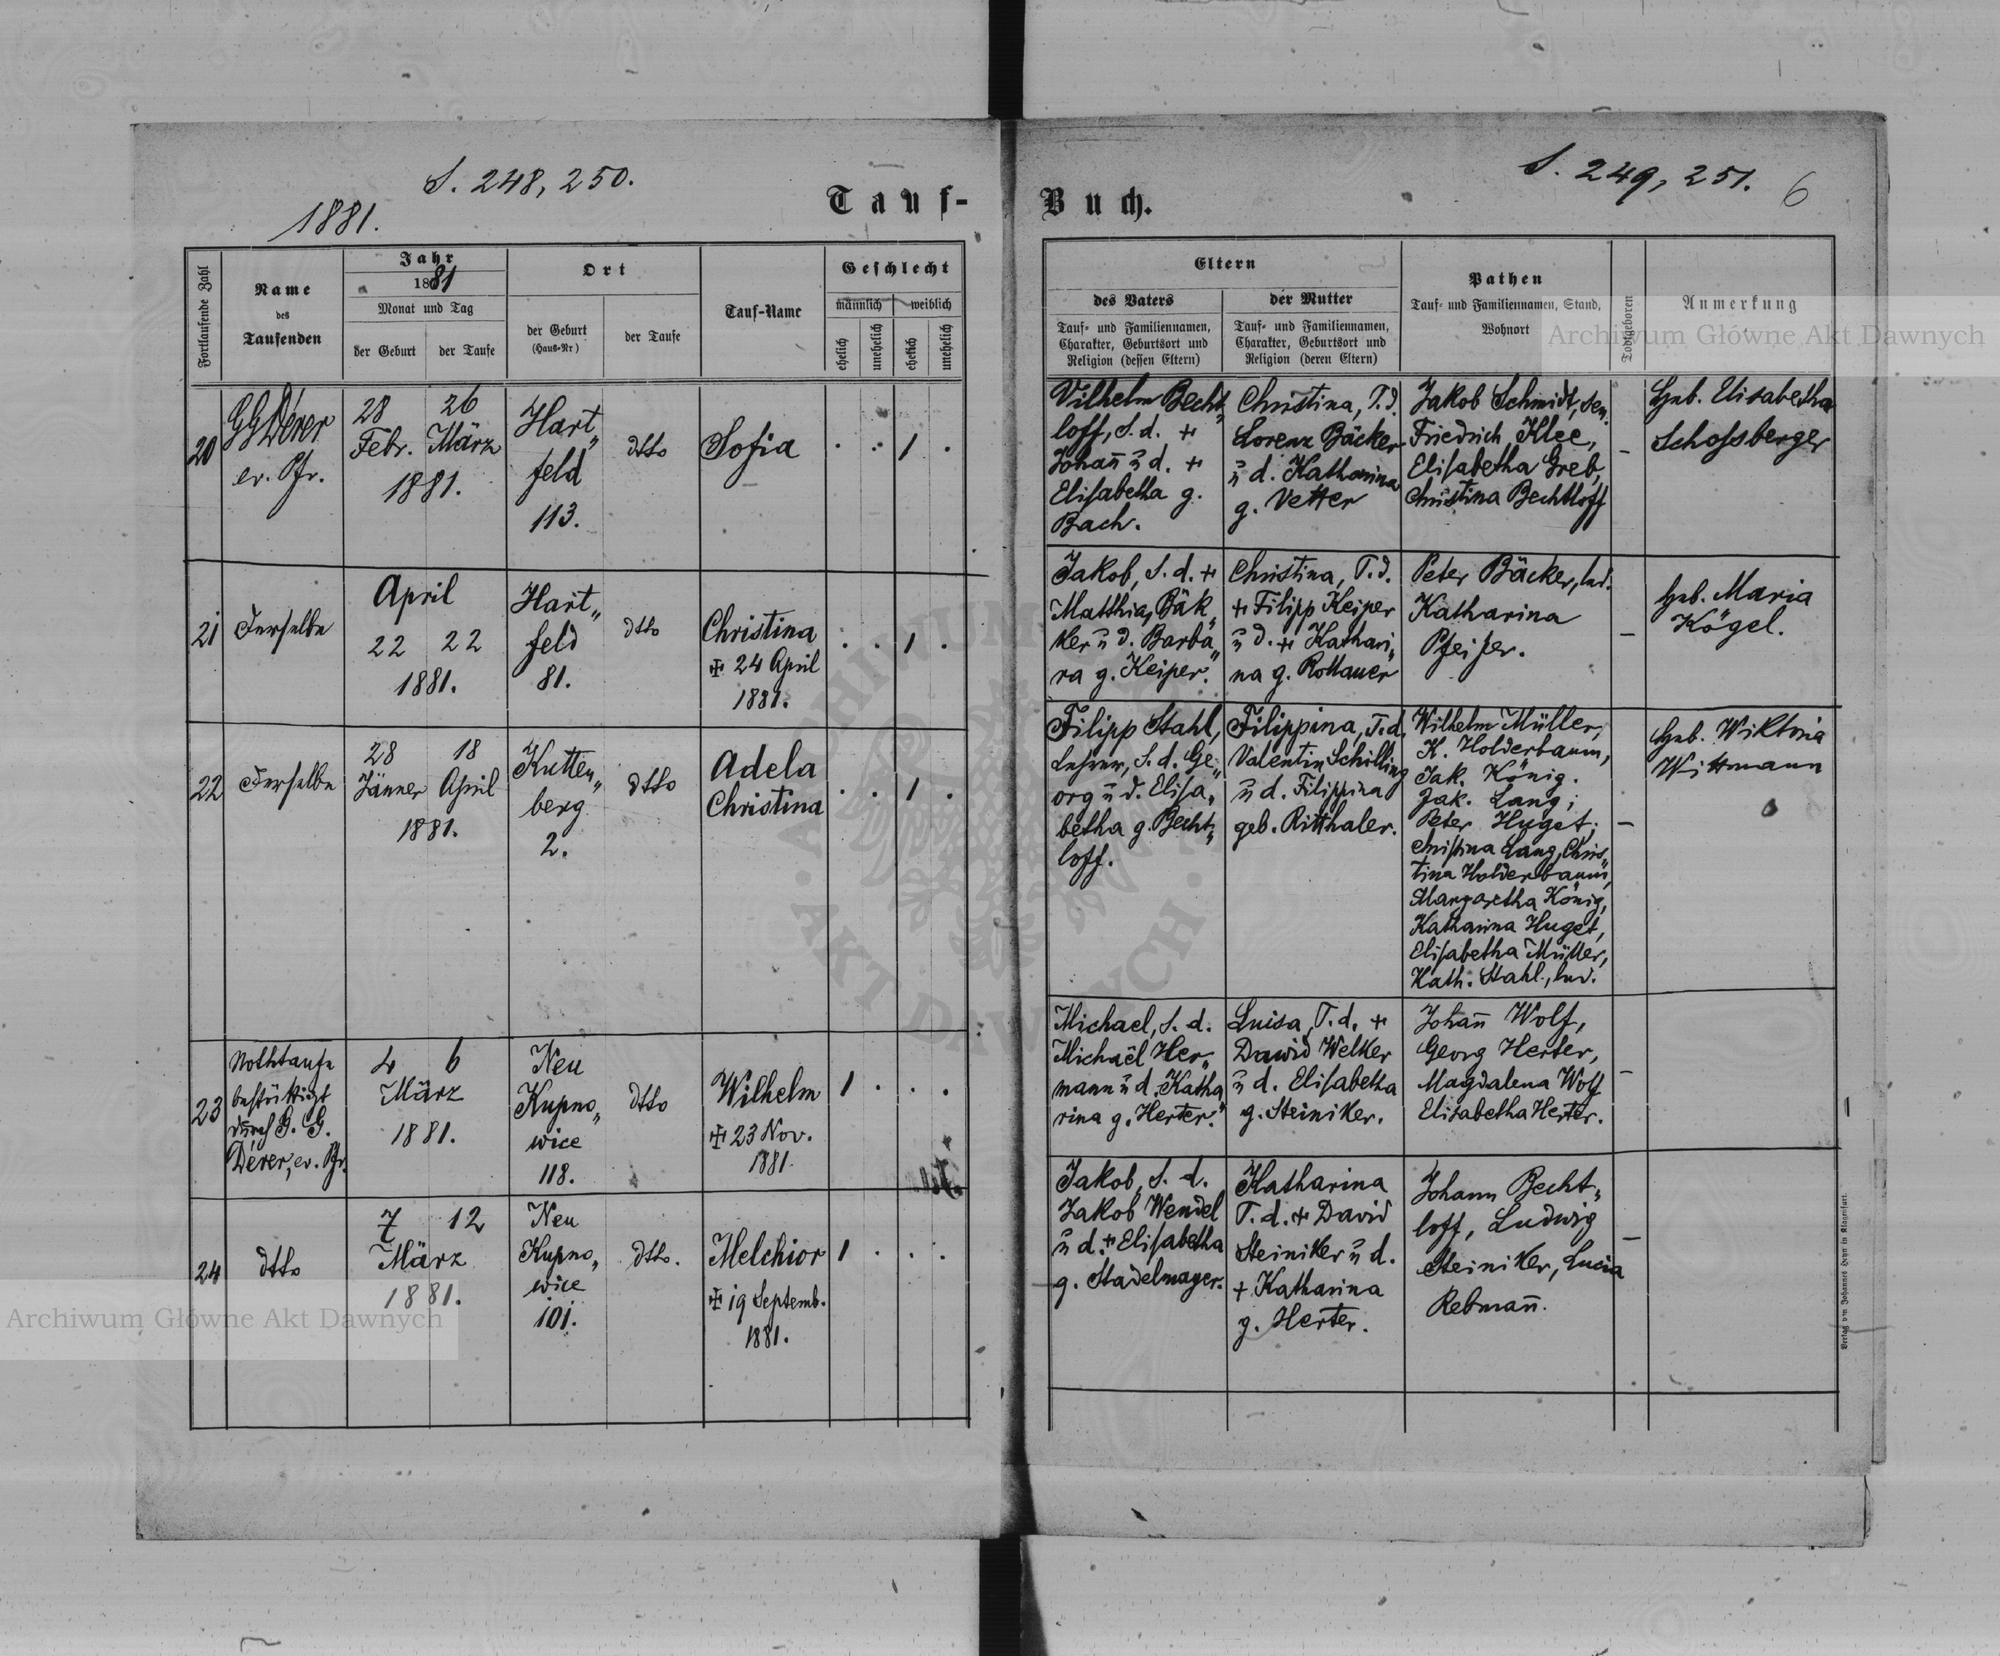 S. 248, 250.
1881.
Tauf-
Fortlaufende Zahl
Name
des
Taufenden
Jahr
1881
Monat und Tag
der Geburt
der Taufe
Ort
der Geburt
(Haus-Nr)
der Taufe
Tauf-Name
Geschlecht
männlich
weiblich
ehelich
unehelich
ehelich
unehelich
20
GGDérer
ev. Pfr.
28 26
Febr. März
1881.
Hart„
feld
113.
dtto
Sofia
. . 1 .
21
Derselbe
April
22 22
1881.
Hart„
feld
81.
dtto
Christina
✠ 24 April
1881.
. . 1 .
22
Derselbe
28 18
Jänner April
1881.
Kutten„
berg
2.
dtto
Adela
Christina
. . 1 .
23
Nothtaufe
bestättigt
durch G. G.
Dérer, ev. Pfr.
4 6
März
1881.
Neu
Kupno„
wice
118.
dtto
Wilhelm
✠ 23 Nov.
1881.
1 . . .
24
dtto
7 12
März
1881.
Neu
Kupno„
wice
101.
dtto.
Melchior
✠ 19 Septemb.
1881.
1 . . .
S. 249, 251.
6
Buch.
Eltern
des Vaters
Tauf- und Familiennamen,
Charakter, Geburtsort und
Religion (dessen Eltern)
der Mutter
Tauf- und Familiennamen,
Charakter, Geburtsort und
Religion (deren Eltern)
Pathen
Tauf- und Familiennamen, Stand,
Wohnort
Todtgeboren
Anmerkung
Vilhelm Becht„
loff, S. d. +
Johan̄ ū d. +
Elisabetha g.
Bach.
Christina, T. d.
Lorenz Bäcker
ū d. Katharina
g. Vetter
Jakob Schmidt, sen.
Friedrich Klee,
Elisabetha Greb,
Christina Bechtloff
–
Heb. Elisabetha
Schossberger
Jakob, S. d. +
Matthias Bäk„
ker ū d. Barba„
ra g. Keiper.
Christina, T. d.
+ Filipp Keiper
ū d. + Kathari„
na g. Rottauer
Peter Bäcker, led.
Katharina
Pfeifer.
–
Heb. Maria
Kögel.
Filipp Stahl,
Lehrer, S. d. Ge„
org ū d. Elisa„
betha g. Becht„
loff.
Filippina, T. d.
Valentin Schilling
ū d. Filippina
geb. Ritthaler.
Wilhelm Müller,
K. Holderbaum,
Jak. König.
Jak. Lang;
Peter Huget;
Christina Lang, Chris„
tina Holderbaum,
Margaretha König,
Katharina Huget,
Elisabetha Müller,
Kath. Stahl, led.
–
Heb. Wiktria
Wittmann
Michael, S. d.
Michaël Her„
mann ū d. Katha„
rina g. Herter.
Luisa, T. d. +
Dawid Welker
ū d. Elisabetha
g. Steiniker.
Johan̄ Wolf,
Georg Herter,
Magdalena Wolf
Elisabetha Herter.
–
Jakob, S. d.
Jakob Wendel
ū d. + Elisabetha
g. Stadelmayer.
Katharina
T. d. + David
Steiniker ū d.
+ Katharina
g. Herter.
Johann Becht„
loff, Ludwig
Steiniker, Lucia
Rebman̄.
–
Verlag von Johannes Heyn in Klagenfurt.
Archiwum Główne Akt Dawnych
Archiwum Główne Akt Dawnych
ARCHIWUM
AKT DAWNYCH